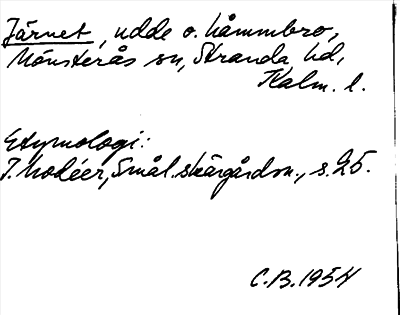 Järnet, udde o. håmmbro,
Mönsterås sn, Stranda hd,
Kalm. l.
Etymologi:
I. Modéer, Smål. skärgårdsn., s. 25.
C.B. 1954